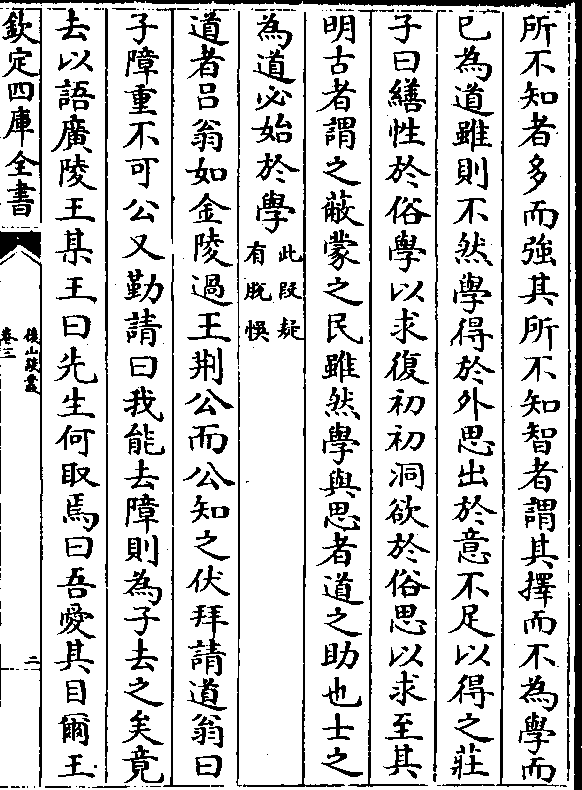 所不知者多而強其所不知智者謂其擇而不為學而
已為道雖則不然學得於外思出於意不足以得之莊
子曰繕性於俗學以求復初初洞欲於俗思以求至其
明古者謂之蔽蒙之民雖然學與思者道之助也士之
為道必始於學此段疑有脫悞
道者呂翁如金陵過王荆公而公知之伏拜請道翁曰
子障重不可公又勤請曰我能去障則為子去之矣竟
去以語廣陵王某王曰先生何取焉曰吾愛其目爾王
欽定四庫全書
後山談叢
卷三
二